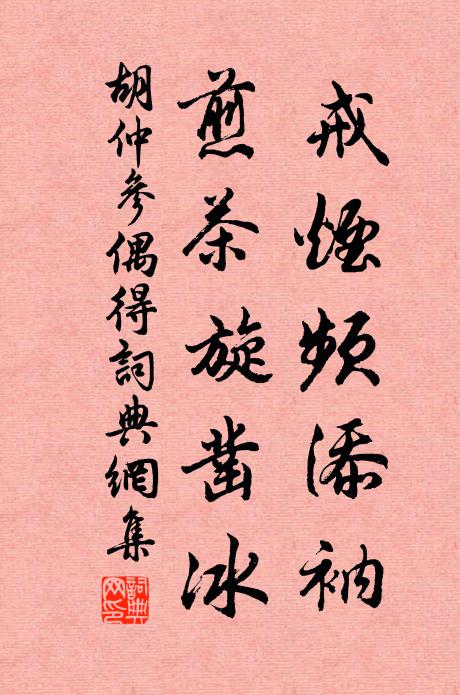 戒煙頻添衲
煎茶旋凿冰
胡仲參偶得詞典網集
詞典网印